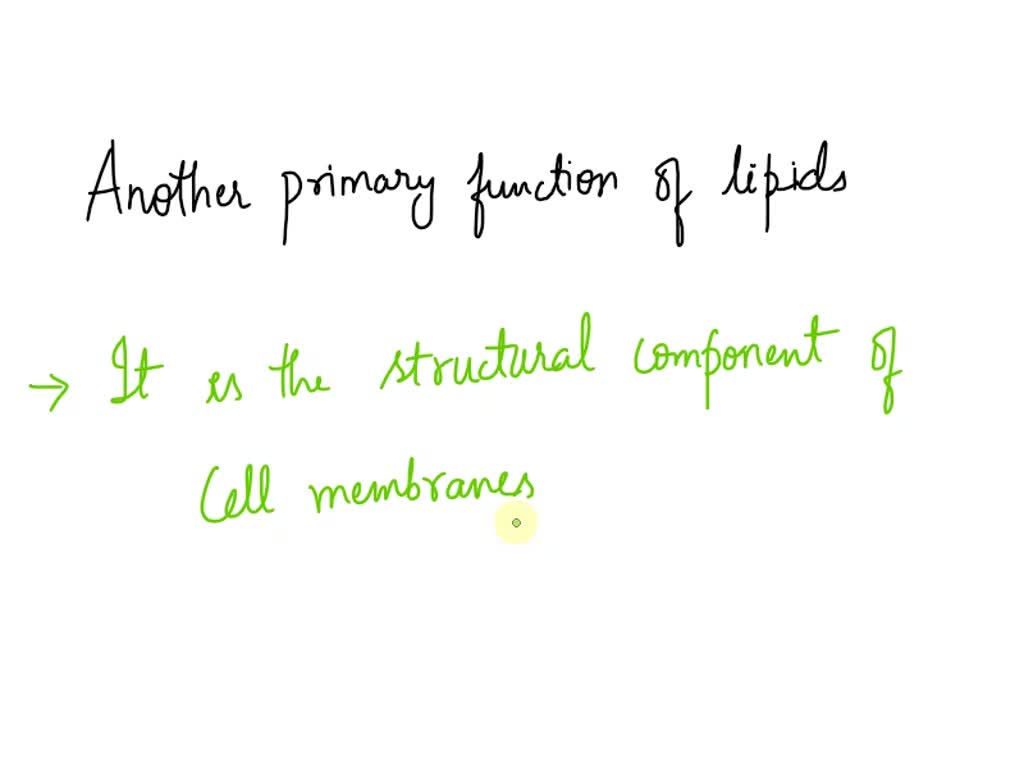 Another primary function of lipids
→ It is the structural component of
Cell membranes